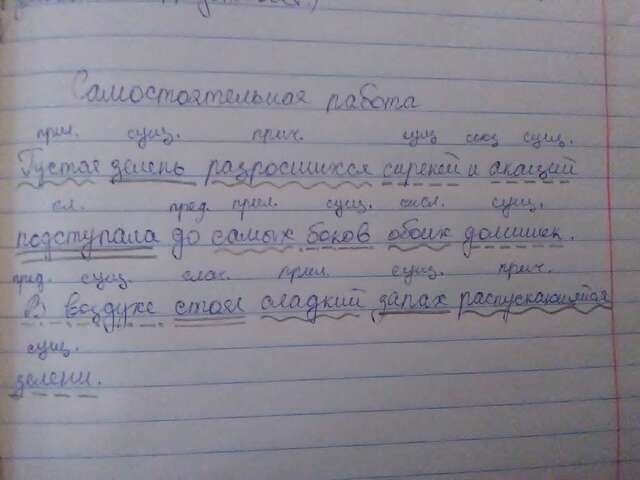 Самостоятельная работа
прил. сущ. прич. сущ союз сущ.
Густая зелень разросшихся сиреней и акаций
гл. пред. прил. сущ. числ. сущ.
подступала до самых боков обоих домишек.
пред. сущ. глаг. прил. сущ. прич.
В воздухе стоял сладкий запах распускающейся
сущ.
зелени.